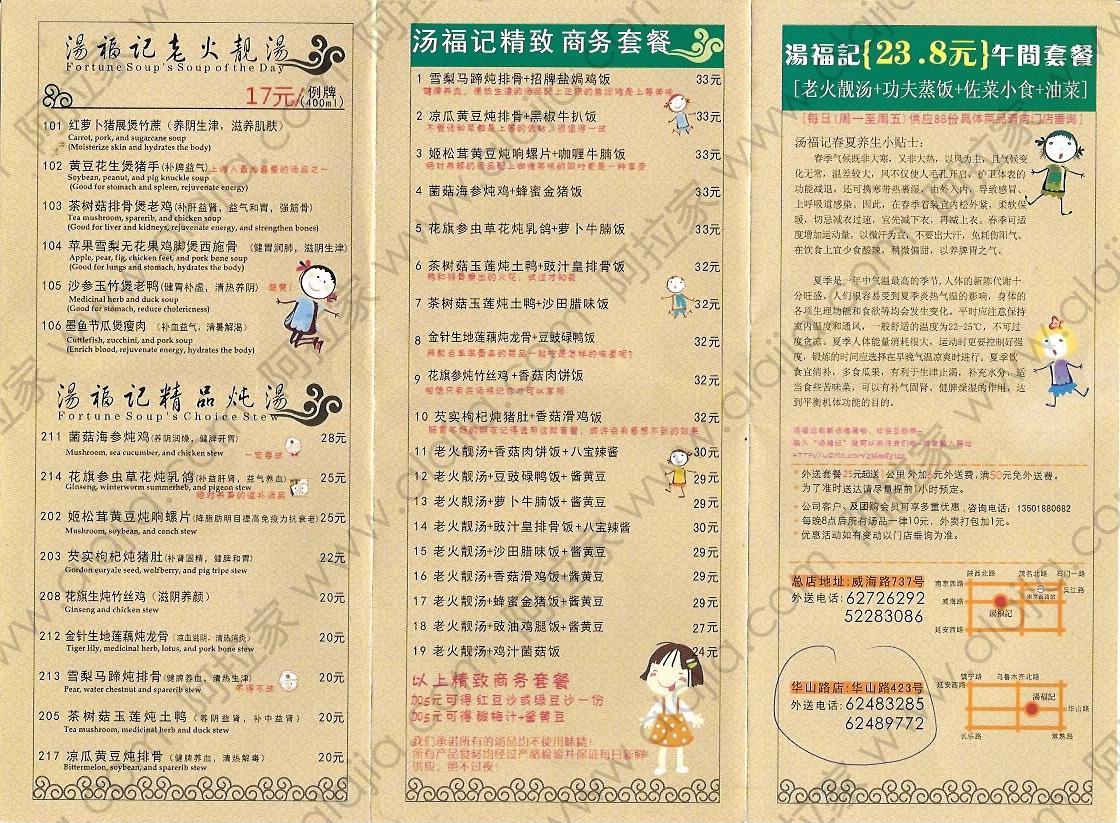 湯福记老火靓湯
Fortune Soup's Soup of the Day
17元/例牌(400ml)
101 红萝卜猪展煲竹蔗（养阴生津，滋养肌肤）
Carrot, pork, and sugarcane soup
(Moisterize skin and hydrates the body)
102 黄豆花生煲猪手(补脾益气)上海人最为喜爱的汤品之一
Soybean, peanut, and pig knuckle soup
(Good for stomach and spleen, rejuvenate energy)
103 茶树菇排骨煲老鸡(补肝益肾，益气和胃，强筋骨)
Tea mushroom, sparerib, and chicken soup
(Good for liver and kidneys, rejuvenate energy, and strengthen bones)
104 苹果雪梨无花果鸡脚煲西施骨（健胃润肺，滋阴生津）
Apple, pear, fig, chicken feet, and pork bone soup
(Good for lungs and stomach, hydrates the body)
105 沙参玉竹煲老鸭(健胃补虚，清热养阴)
Medicinal herb and duck soup
(Good for stomach, reduce cholericness)
106 墨鱼节瓜煲瘦肉（补血益气，清暑解渴）
Cuttlefish, zucchini, and pork soup
(Enrich blood, rejuvenate energy, hydrates the body)
湯福记精品炖湯
Fortune Soup's Choice Stew
211 菌菇海参炖鸡(养阴润燥，健脾开胃) 28元
Mushroom, sea cucumber, and chicken stew
一定尝试
214 花旗参虫草花炖乳鸽(补益肝肾，益气养血) 25元
Ginseng, winterworm summerherb, and pigeon stew
绝对养身的滋补汤品
202 姬松茸黄豆炖响螺片(降脂肪明目提高免疫力抗衰老) 25元
Mushroom, soybean, and conch stew
203 芡实枸杞炖猪肚(补肾固精，健脾和胃) 22元
Gordon euryale seed, wolfberry, and pig tripe stew
208 花旗生炖竹丝鸡（滋阴养颜） 20元
Ginseng and chicken stew
212 金针生地莲藕炖龙骨（凉血滋阴，清热消炎） 20元
Tiger lily, medicinal herb, lotus, and pork bone stew
213 雪梨马蹄炖排骨(健脾养血，清热生津) 20元
Pear, water chestnut and sparerib stew
不得不试
205 茶树菇玉莲炖土鸭（养阴益肾，补中益肾） 20元
Tea mushroom, medicinal herb and duck stew
217 凉瓜黄豆炖排骨（健脾养血，清热解毒） 20元
Bittermelon, soybean, and sparerib stew
汤福记精致 商务套餐
1 雪梨马蹄炖排骨+招牌盐焗鸡饭 33元
2 凉瓜黄豆炖排骨+黑椒牛扒饭 33元
3 姬松茸黄豆炖响螺片+咖喱牛腩饭 33元
4 菌菇海参炖鸡+蜂蜜金猪饭 33元
5 花旗参虫草花炖乳鸽+萝卜牛腩饭 33元
6 茶树菇玉莲炖土鸭+豉汁皇排骨饭 32元
7 茶树菇玉莲炖土鸭+沙田腊味饭 32元
8 金针生地莲藕炖龙骨+豆豉碌鸭饭 32元
9 花旗参炖竹丝鸡+香菇肉饼饭 32元
10 芡实枸杞炖猪肚+香菇滑鸡饭 32元
11 老火靓汤+香菇肉饼饭+八宝辣酱 30元
12 老火靓汤+豆豉碌鸭饭+酱黄豆 29元
13 老火靓汤+萝卜牛腩饭+酱黄豆 29元
14 老火靓汤+豉汁皇排骨饭+八宝辣酱 30元
15 老火靓汤+沙田腊味饭+酱黄豆 29元
16 老火靓汤+香菇滑鸡饭+酱黄豆 29元
17 老火靓汤+蜂蜜金猪饭+酱黄豆 29元
18 老火靓汤+豉油鸡腿饭+酱黄豆 27元
19 老火靓汤+鸡汁菌菇饭 24元
以上精致商务套餐
加5元可得红豆沙或绿豆沙一份
加5元可得酸梅汁+酱黄豆
我们承诺所有的汤品均不使用味精！
所有产品食材均经过严格检验并保证每日新鲜
供应，绝不过夜！
湯福記{23.8元}午間套餐
[老火靓汤+功夫蒸饭+佐菜小食+油菜]
[每日(周一至周五)供应88份具体菜品请向门店垂询]
汤福记春夏养生小贴士：
春季气候既非大寒，又非大热，以风为主，且气候变
化无常，温差较大，风不仅使人毛孔开启，护卫体表的
功能减退，还可携寒带热裹湿，由外入内，导致感冒、
上呼吸道感染。因此，在春季着装宜内松外紧，柔软保
暖，切忌减衣过速，宜先减下衣，再减上衣。春季可适
度增加运动量，以微汗为宜，不要出大汗，免耗伤阳气。
在饮食上宜少食酸辣，稍微偏甜，以养脾胃之气。
夏季是一年中气温最高的季节，人体的新陈代谢十
分旺盛。人们很容易受到夏季炎热气温的影响，身体的
各项生理功能和食欲等均会发生变化。平时应注意保持
室内温度和通风，一般舒适的温度为22-25℃，不可过
度贪凉。夏季人体能量消耗很大，运动时更要控制好强
度，锻炼的时间应选择在早晚气温凉爽时进行。夏季饮
食宜清补，多食瓜果，有利于生津止渴，补充水分。适
当食些苦味菜，可以有补气固肾，健脾燥湿的作用，达
到平衡机体功能的目的。
*外送套餐25元起送1公里外加5元外送费，满50元免外送费，
为了准时送达请尽量提前1小时预定。
*公司客户、及团购会员可享多重优惠，咨询电话：13501880682
*每晚8点后所有汤品一律10元，外卖打包加1元。
*优惠活动如有变动以门店垂询为准。
总店地址：威海路737号
外送电话：62726292
52283086
陕西北路 茂名北路 石门一路
南京西路
吴江路
威海路
湯福記
延安西路
华山路店：华山路423号
外送电话：62483285
62489772
镇宁路 乌鲁木齐北路
延安西路
湯福記
华山路
长乐路 常熟路
www.alajia.com
阿拉家